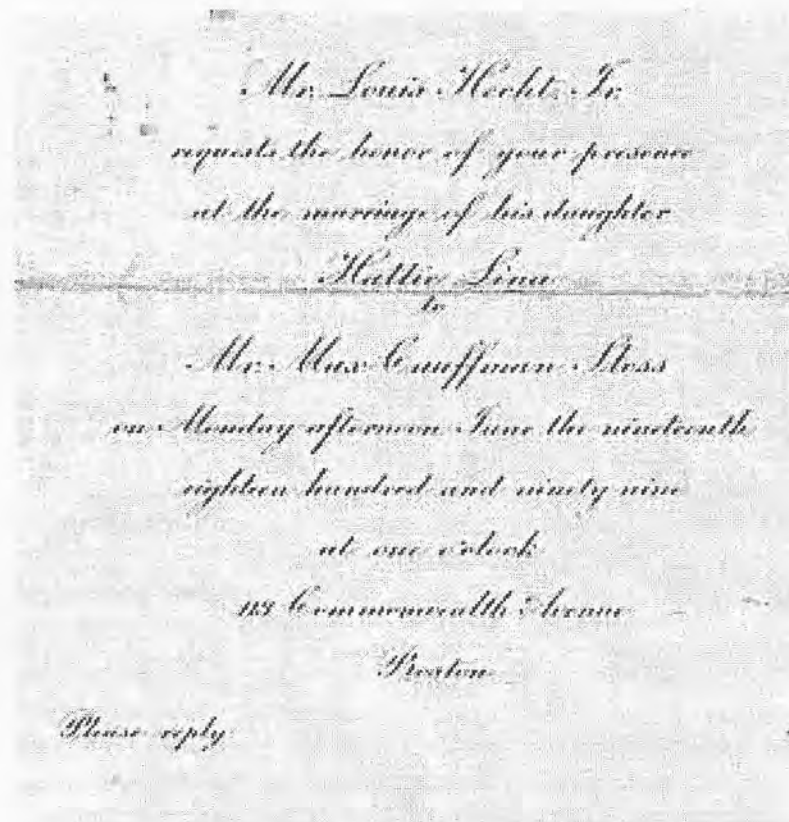 Mr. Louis Hecht, Jr.
requests the honor of your presence
at the marriage of his daughter
Hattie Lina
to
Mr. Max Cauffman Sloss
on Monday afternoon June the nineteenth
eighteen hundred and ninety nine
at one o'clock
Commonwealth Avenue
Boston
Please reply